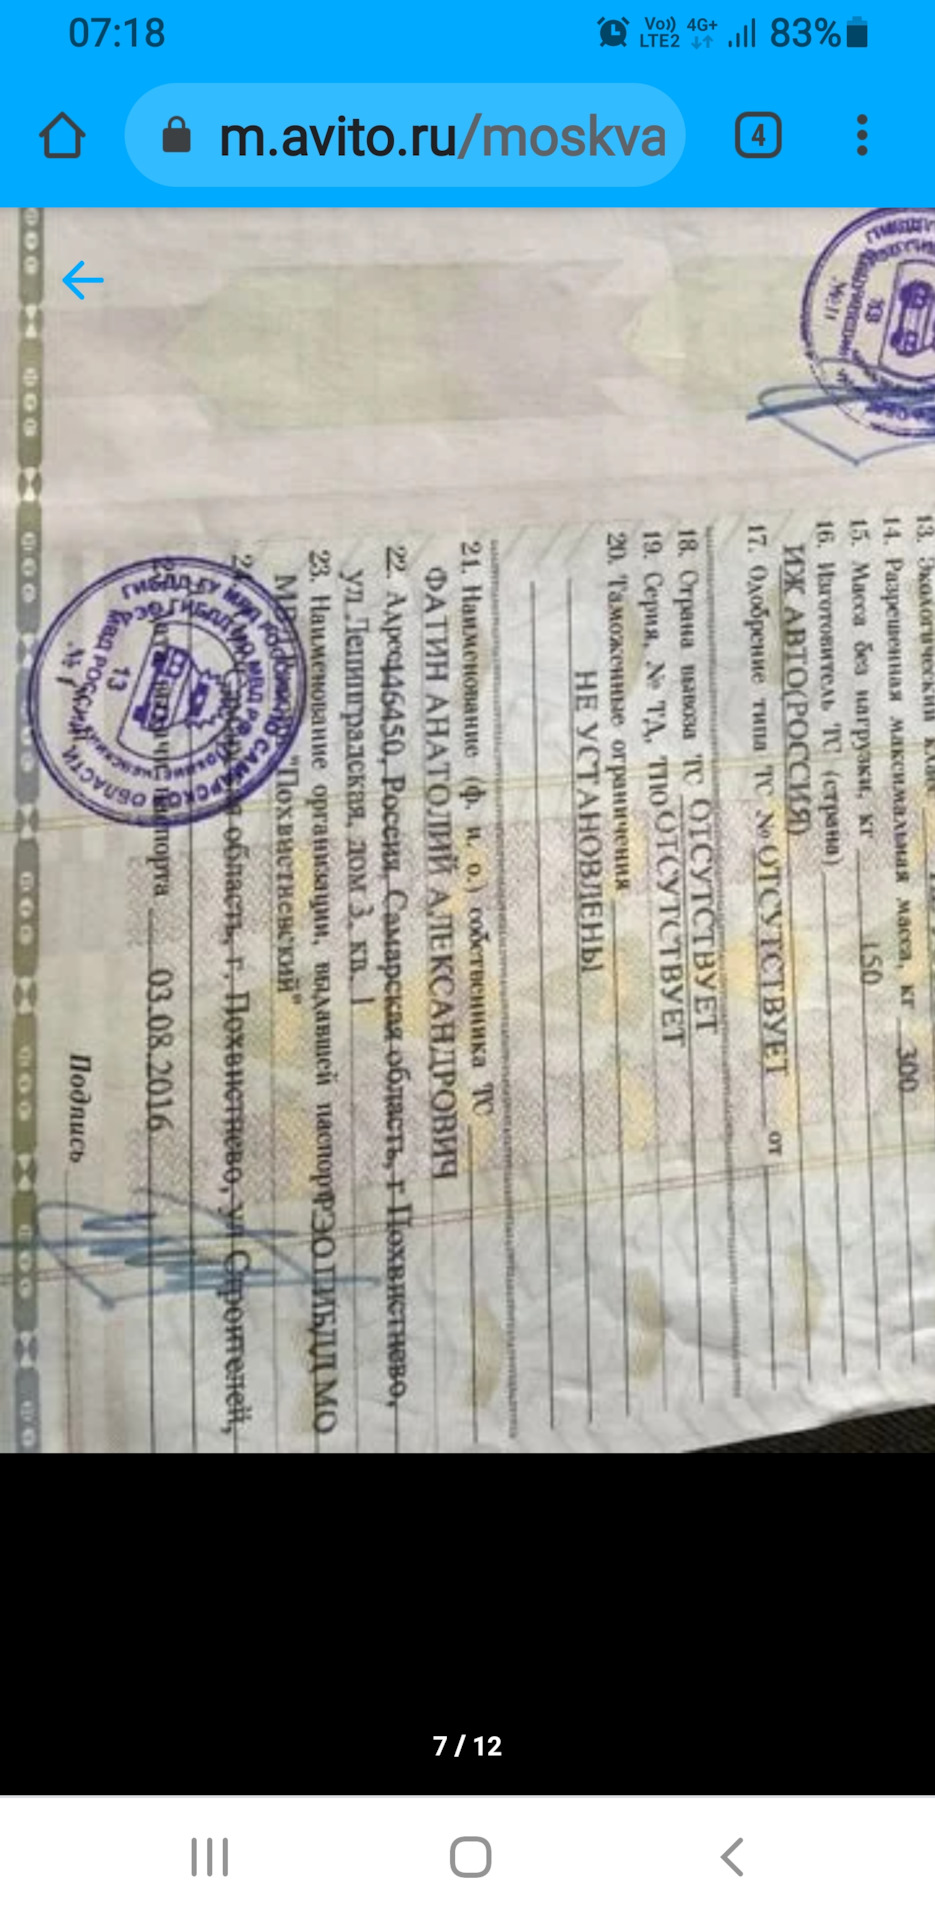 07:18
Vo)) LTE2 4G+ 83%
m.avito.ru/moskva
4
13. Экологический класс
14. Разрешенная максимальная масса, кг 300
15. Масса без нагрузки, кг 150
16. Изготовитель ТС (страна)
ИЖ АВТО(РОССИЯ)
17. Одобрение типа ТС №ОТСУТСТВУЕТ от
18. Страна вывоза ТС ОТСУТСТВУЕТ
19. Серия, № ТД, ТПО ОТСУТСТВУЕТ
20. Таможенные ограничения
НЕ УСТАНОВЛЕНЫ
21. Наименование (ф. и. о.) собственника ТС
ФАТИН АНАТОЛИЙ АЛЕКСАНДРОВИЧ
22. Адрес 446450, Россия, Самарская область, г Похвистнево,
ул Ленинградская, дом 3, кв. 1
23. Наименование организации, выдавшей паспорт РЭО ГИБДД МО
"Похвистневский"
область, г. Похвистнево, ул Строителей,
паспорта 03.08.2016
Подпись
7 / 12